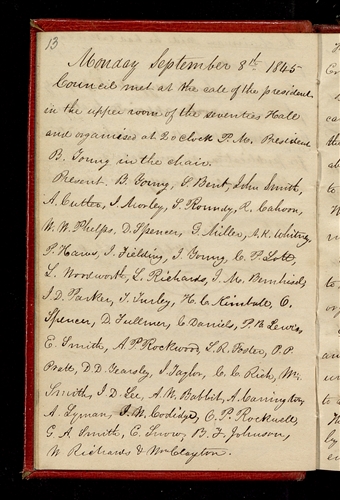 13
Monday September 8th 1845
Council met at the call of the president
in the upper room of the seventies Hall
and organised at 2 o clock P. M. President
B. Young in the chair.
Present. B. Young, S. Bent, John Smith,
A. Cutler, I. Morley, S. Roundy, R. Cahoon,
W. W. Phelps, D. Spencer, G. Miller, N. K. Whitney,
P. Haws, J. Fielding, J. Young, C. P. Lott,
L. Woodworth, L. Richards, J. M. Bernhisel,
J. D. Parker, T. Turley, H. C. Kimball, O.
Spencer, D. Fullmer, C. Daniels, P. B. Lewis,
E. Smith, A. P. Rockwood, L. R. Foster, P. P.
Pratt, D. D. Yearsley, J. Taylor, C. C. Rich, Wm
Smith, J. D. Lee, A. W. Babbit, A. Carrington,
A. Lyman, J. W. Coolidge, O. P. Rockwell,
G. A. Smith, E. Snow, B. F. Johnson,
W. Richards & Wm Clayton.